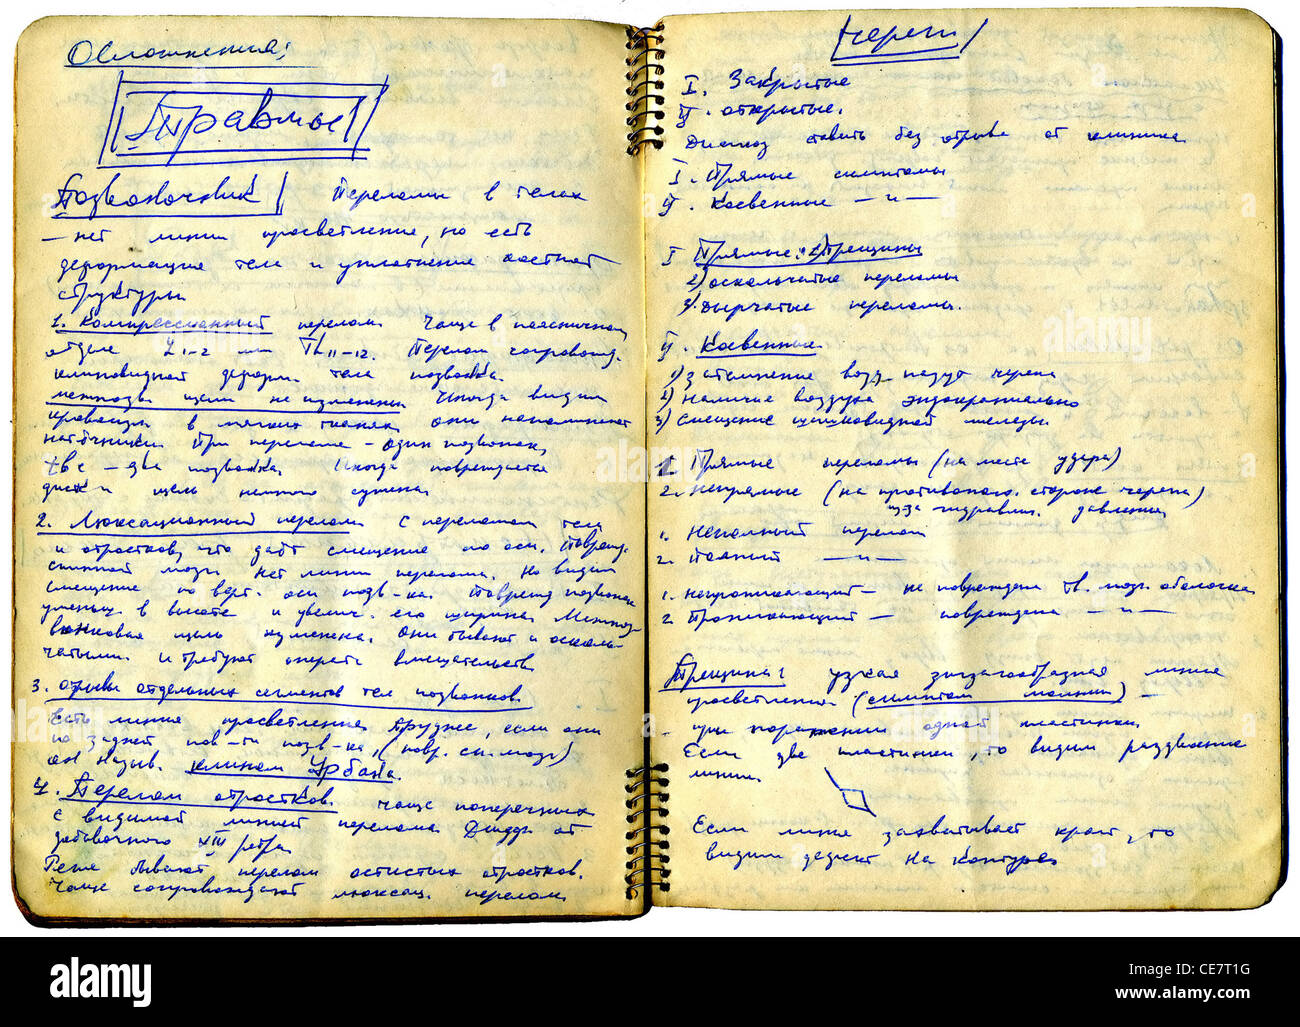 Осложнения:
Травмы
Позвоночник Переломы в телах
— нет линии просветления, но есть
деформация тела и уплотнение костной
структуры
1. Компрессионный перелом Чаще в поясничном
отделе L1-2 или Th11-12. Перелом сопровожд.
клиновидной деформ. тела позвонка.
межпозв. щели не изменены Иногда видим
в мягких тканях они напоминают
натёчники При переломе — один позвонок,
tbc — две позвонка. Иногда повреждается
диск и щель немного сужена.
2. Люксационный перелом с переломом тела
и отростков, что даёт смещение по оси. Повреж.
спинной мозг. Нет линии перелома. Но видим
смещение по верт. оси позв-ка. Поврежд. позвонок
уменьш. в высоте и увелич. его ширина. Межпоз-
вонковая щель изменена. они бывают и осколь-
чатыми и требуют операт. вмешательств
3. отрывы отдельных сегментов тел позвонков.
Есть линия просветления. Хуже, если они
на задней пов-ти позв-ка, (повр. сп. мозг)
он назыв. клином Урбана.
4. Перелом отростков. Чаще поперечных
с видимой линией перелома. Дифф. от
добавочного XIII ребра
Реже бывают перелом остистых отростков.
Чаще сопровождают люксац. перелом.
Череп
I. Закрытые
II. открытые.
Диагноз ставить без отрыва от клиники
I. Прямые симптомы
II. Косвенные — и —
I Прямые: 1) Трещины
2) оскольчатые переломы
3) Дырчатые переломы.
II. Косвенные.
1) затемнение возд. пазух черепа
2) Наличие воздуха эндокраниально
3) смещение шишковидной железы.
1. Прямые переломы (на месте удара)
2. непрямые (на противопол. стороне черепа)
из-за гидравл. давления
1. Неполный перелом
2. Полный — и —
1. непроникающий — не повреждена тв. мозг. оболочка
2. Проникающий — повреждена — и —
Трещина: узкая зигзагообразная линия
просветления. (симптом молнии)
— при поражении одной пластинки.
Если две пластинки, то видим раздвоение
линии.
Если линия захватывает край, то
видим дефект на контуре
alamy
alamy
Image ID: CE7T1G
www.alamy.com